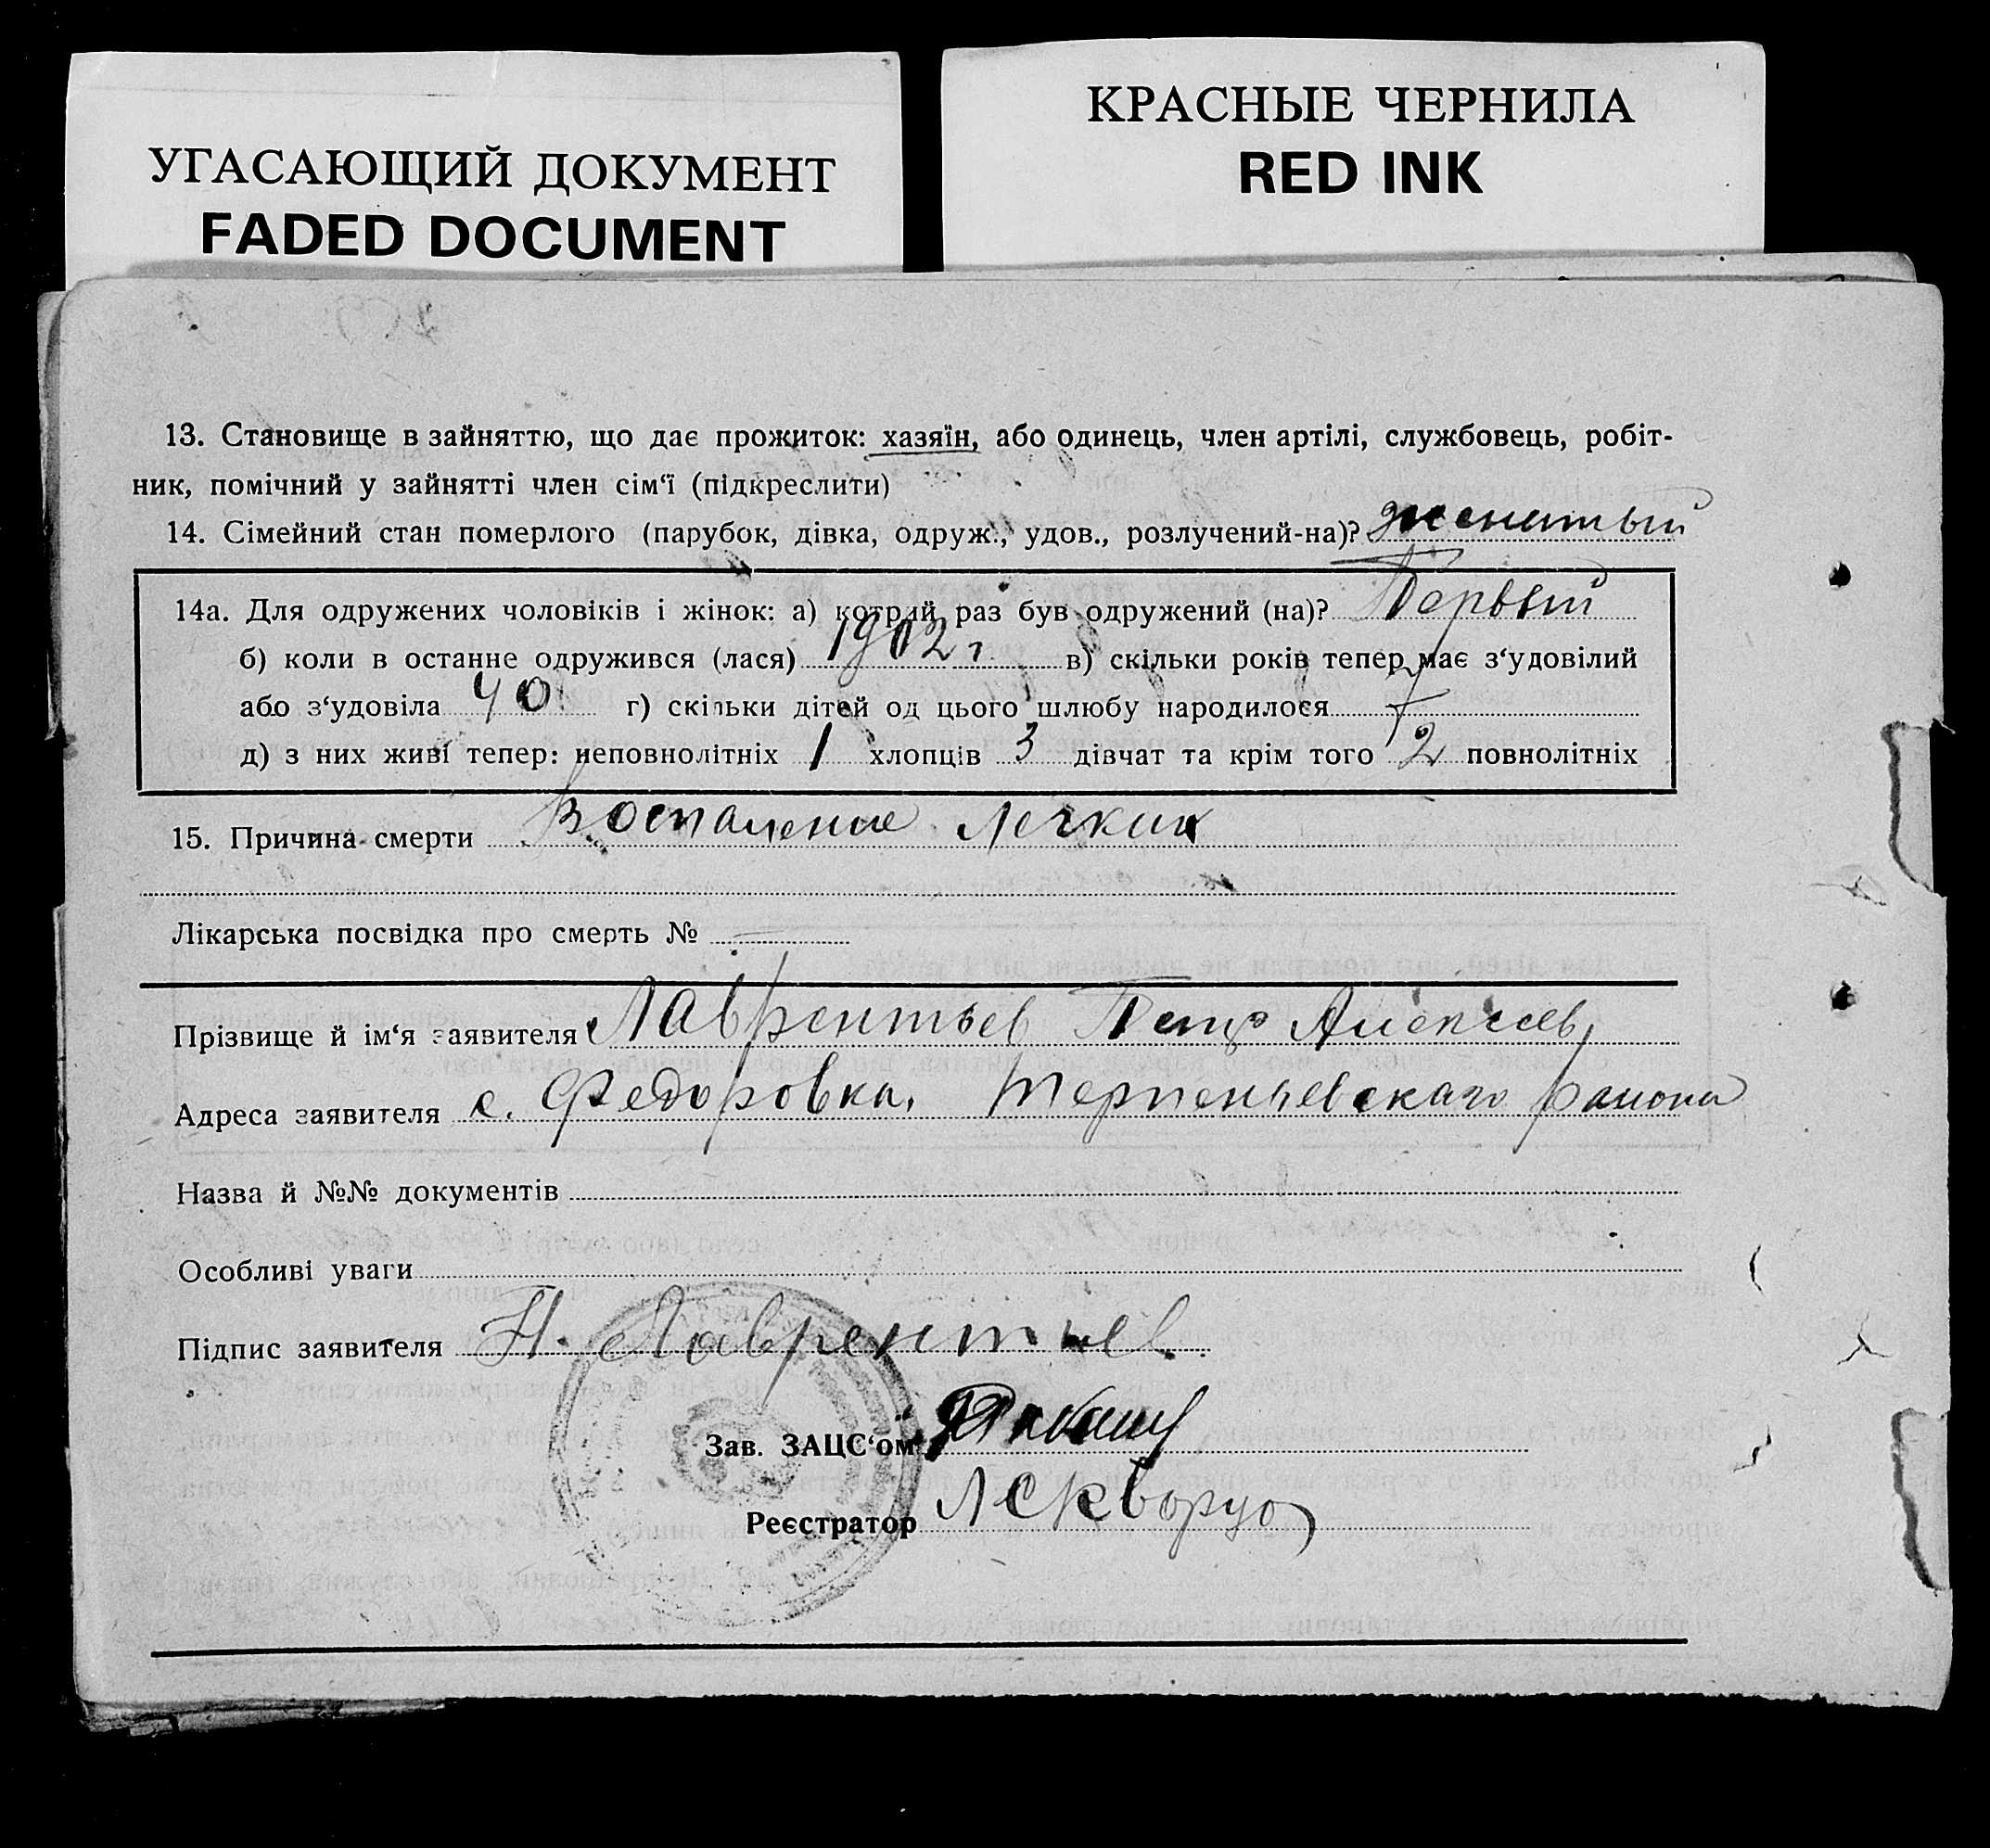 УГАСАЮЩИЙ ДОКУМЕНТ
FADED DOCUMENT
КРАСНЫЕ ЧЕРНИЛА
RED INK
13. Становище в зайняттю, що дає прожиток: хазяїн, або одинець, член артілі, службовець, робіт-
ник, помічний у зайнятті член сім‘ї (підкреслити)
14. Сімейний стан померлого (парубок, дівка, одруж., удов., розлучений-на)? женатый
14а. Для одружених чоловіків і жінок: а) котрий раз був одружений (на)? Первый
б) коли в останнє одружився (лася) 1902 г. в) скільки років тепер має з‘удовілий
або з‘удовіла 40 г) скільки дітей од цього шлюбу народилося 7
д) з них живі тепер: неповнолітніх 1 хлопців 3 дівчат та крім того 2 повнолітніх
15. Причина смерти Воспаление Легких
Лікарська посвідка про смерть №
Прізвище й ім‘я заявителя Лаврентьев Петр Алексеев
Адреса заявителя с. Федоровка, Терпеньевскаго района
Назва й №№ документів
Особливі уваги
Підпис заявителя П. Лаврентьев.
Зав. ЗАЦС‘ом
Реєстратор